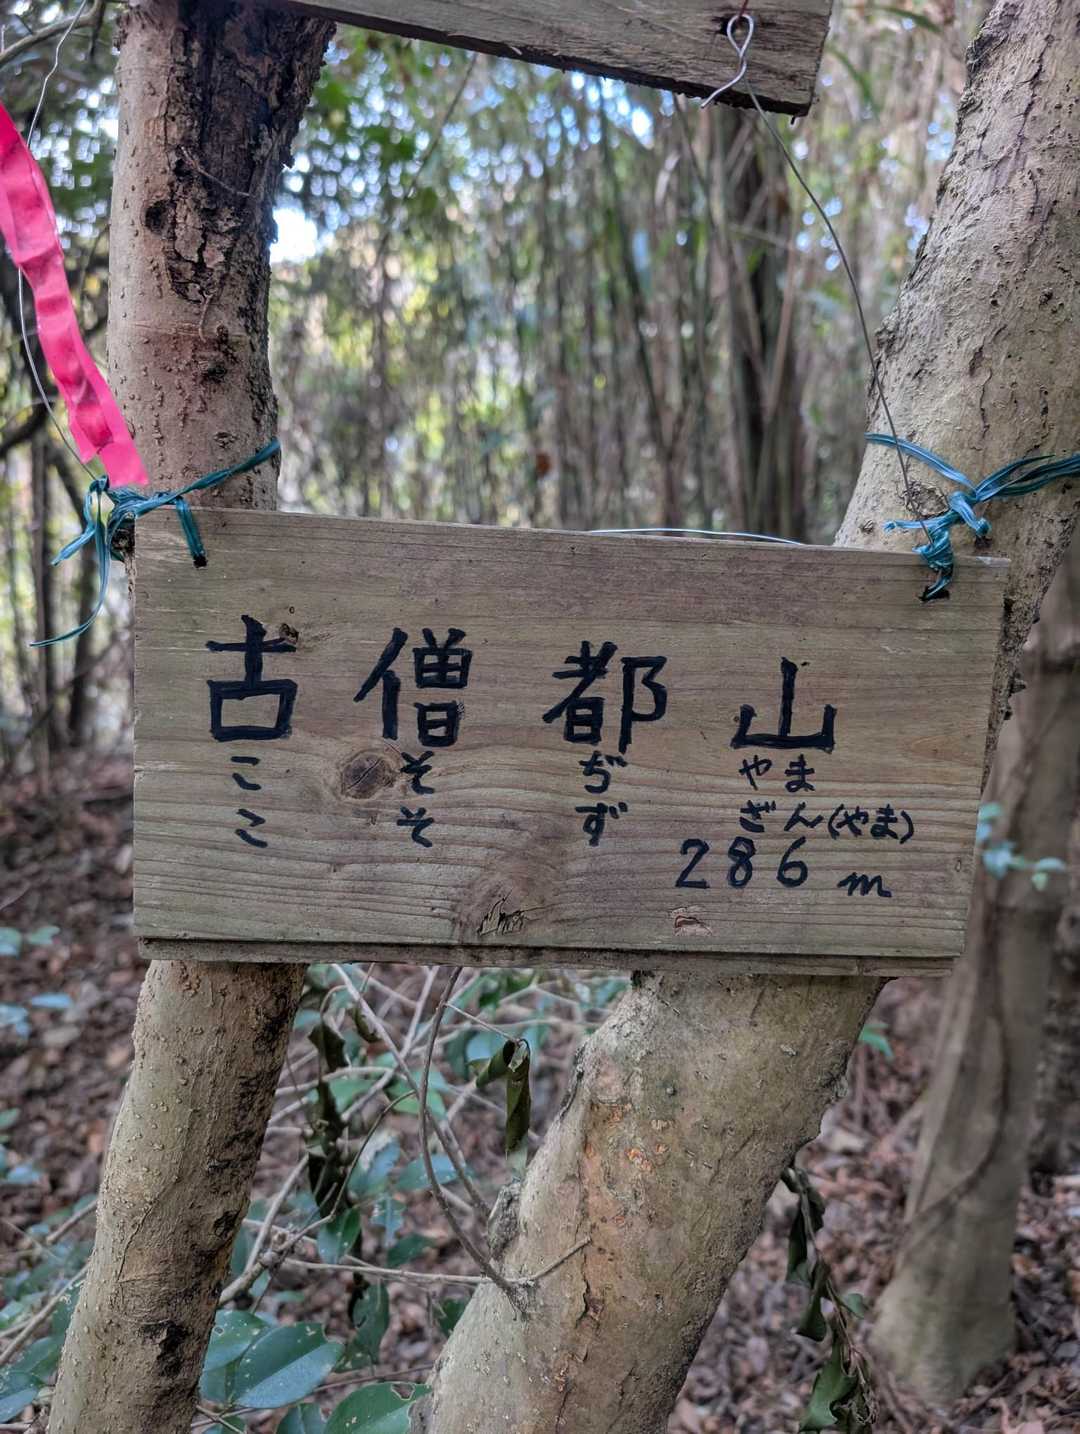 古僧都山
こ そ ぢ やま
こ そ ず ざん(やま)
286m